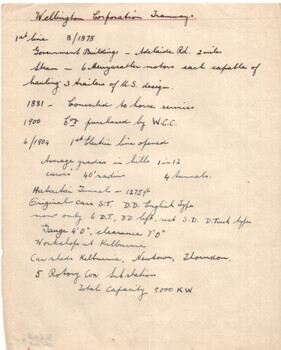 Wellington Corporation Tramways.
1st line 8/1878
Government Buildings - Adelaide Rd. 2 miles
Steam - 6 Merryweather motors each capable of
hauling 3 trailers of U.S. design.
1881 - Converted to horse services
1900 purchased by W.C.C.
6/1904 1st Electric line opened
Average grades in hills 1 in 12
curves 40' radius 4 tunnels.
Hataitai Tunnel - 1275ft
Original cars S.T. D.D. English Type
now only 6 D.T., DD left, rest S.D. D.Truck type
Gauge 4'0", clearance 7'0"
Workshops at Kilbirnie
Car sheds Kilbirnie, Newtown, Thorndon.
5 Rotary Con. Substation
Total Capacity 8000 KW